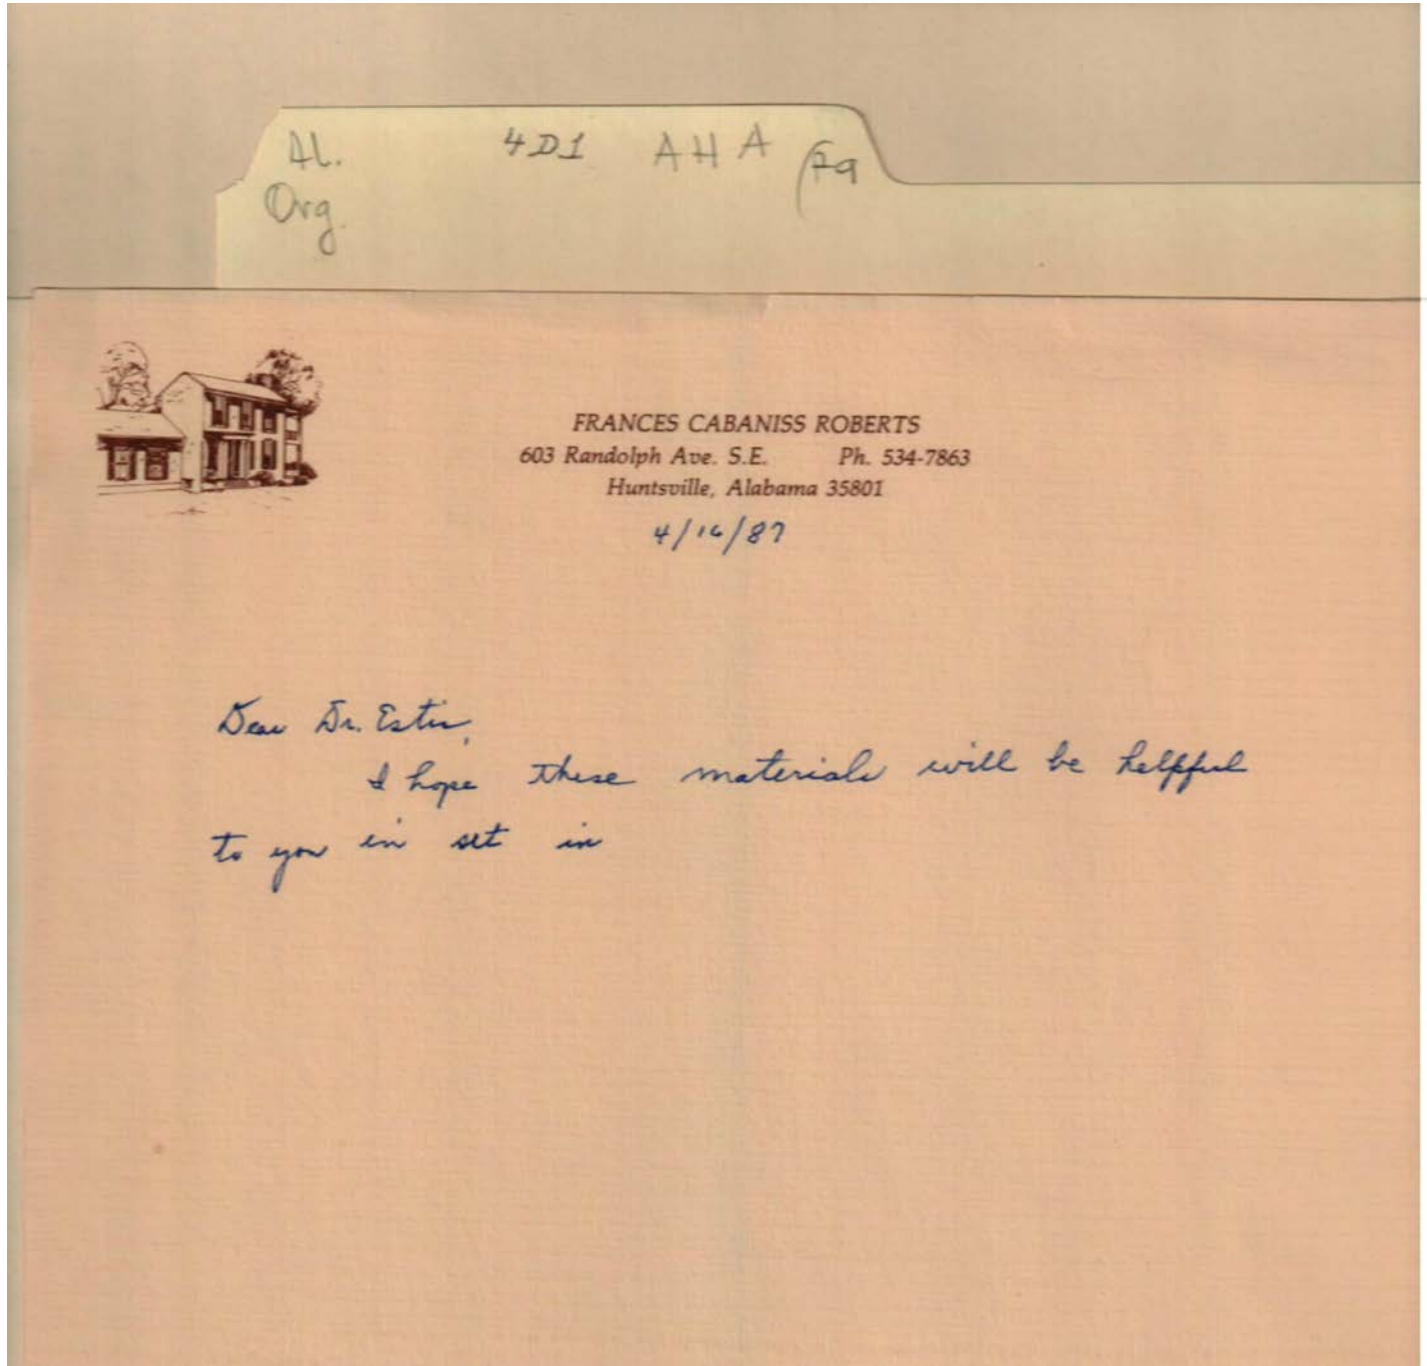 AL. 4D1 AHA
Org.
FRANCES CABANISS ROBERTS
603 Randolph Ave. S.E. Ph. 534-7863
Huntsville, Alabama 35801
4/16/87
Dear Dr.
I hope these materials will be helpful
to you in set in